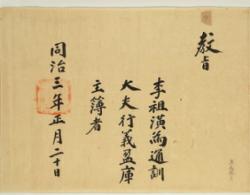 教旨
李祖潢爲通訓
大夫行義盈庫
主簿者
同治三年正月二十日